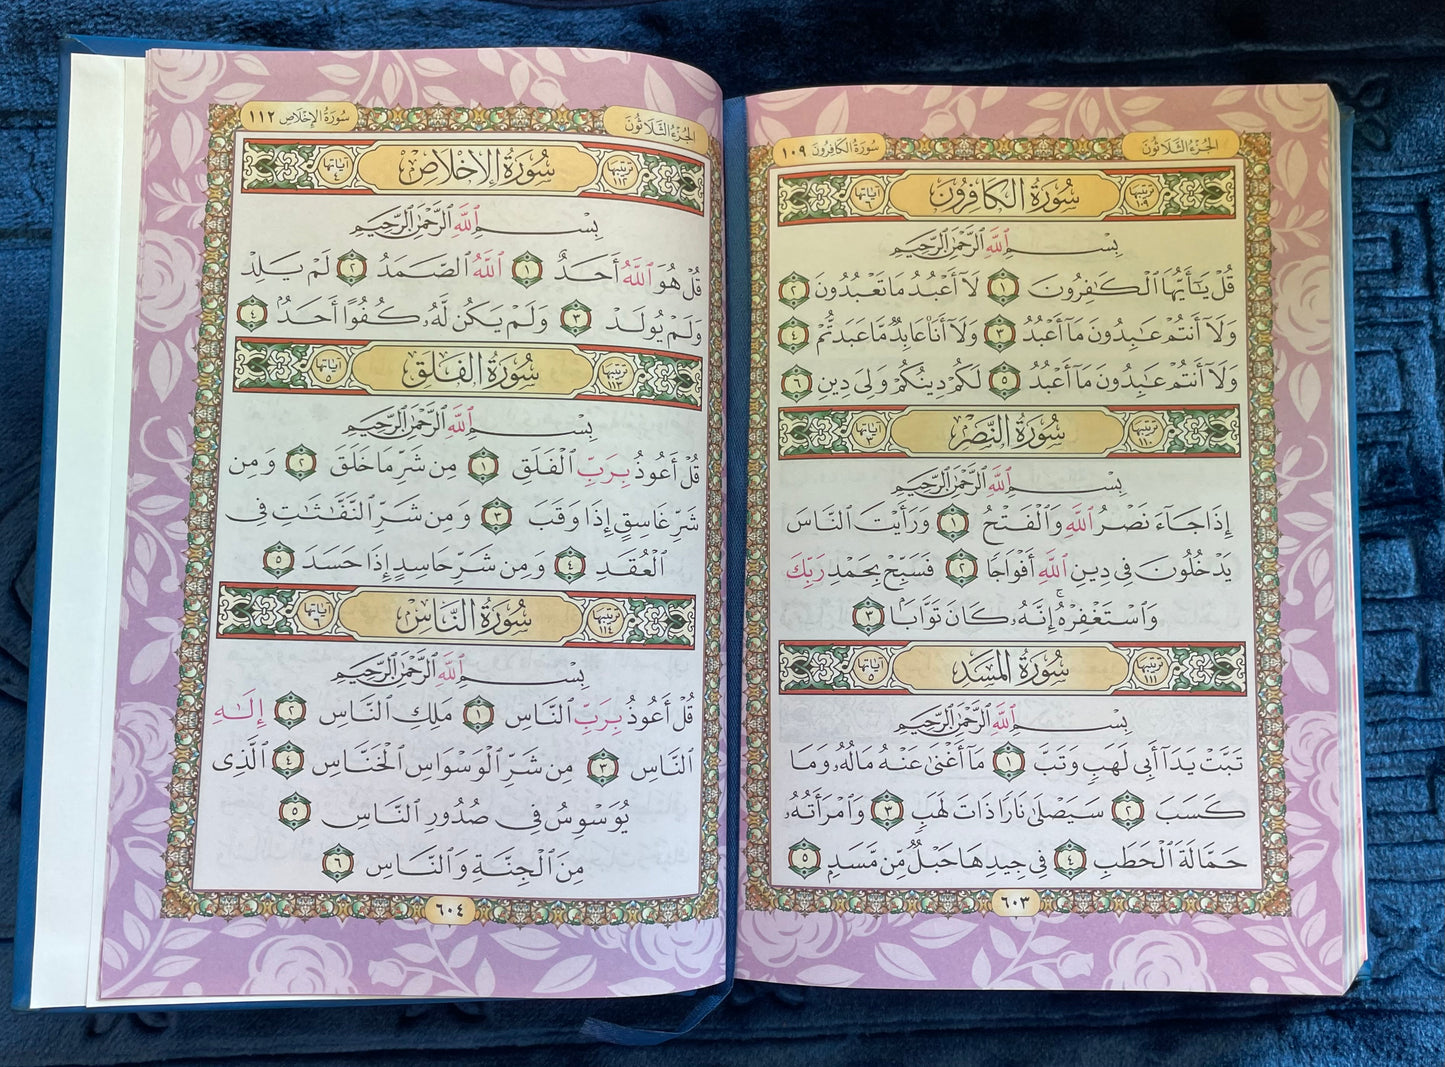 سُورَةُ الكَافِرُونَ ١٠٩
الجُزْءُ الثَّلَاثُونَ
ترتيبها ١٠٩
سُورَةُ الكَافِرُونَ
آياتها ٦
بِسْمِ ٱللَّهِ ٱلرَّحْمَٰنِ ٱلرَّحِيمِ
قُلْ يَٰٓأَيُّهَا ٱلْكَٰفِرُونَ ١ لَآ أَعْبُدُ مَا تَعْبُدُونَ ٢
وَلَآ أَنتُمْ عَٰبِدُونَ مَآ أَعْبُدُ ٣ وَلَآ أَنَا۠ عَابِدٌ مَّا عَبَدتُّمْ ٤
وَلَآ أَنتُمْ عَٰبِدُونَ مَآ أَعْبُدُ ٥ لَكُمْ دِينُكُمْ وَلِىَ دِينِ ٦
ترتيبها ١١٠
سُورَةُ النَّصْرِ
آياتها ٣
بِسْمِ ٱللَّهِ ٱلرَّحْمَٰنِ ٱلرَّحِيمِ
إِذَا جَآءَ نَصْرُ ٱللَّهِ وَٱلْفَتْحُ ١ وَرَأَيْتَ ٱلنَّاسَ
يَدْخُلُونَ فِى دِينِ ٱللَّهِ أَفْوَاجًا ٢ فَسَبِّحْ بِحَمْدِ رَبِّكَ
وَٱسْتَغْفِرْهُ ۚ إِنَّهُۥ كَانَ تَوَّابًۢا ٣
ترتيبها ١١١
سُورَةُ المَسَدِ
آياتها ٥
بِسْمِ ٱللَّهِ ٱلرَّحْمَٰنِ ٱلرَّحِيمِ
تَبَّتْ يَدَآ أَبِى لَهَبٍ وَتَبَّ ١ مَآ أَغْنَىٰ عَنْهُ مَالُهُۥ وَمَا
كَسَبَ ٢ سَيَصْلَىٰ نَارًا ذَاتَ لَهَبٍ ٣ وَٱمْرَأَتُهُۥ
حَمَّالَةَ ٱلْحَطَبِ ٤ فِى جِيدِهَا حَبْلٌ مِّن مَّسَدٍۭ ٥
٦٠٣
الجُزْءُ الثَّلَاثُونَ
سُورَةُ الإِخْلَاصِ ١١٢
ترتيبها ١١٢
سُورَةُ الإِخْلَاصِ
آياتها ٤
بِسْمِ ٱللَّهِ ٱلرَّحْمَٰنِ ٱلرَّحِيمِ
قُلْ هُوَ ٱللَّهُ أَحَدٌ ١ ٱللَّهُ ٱلصَّمَدُ ٢ لَمْ يَلِدْ
وَلَمْ يُولَدْ ٣ وَلَمْ يَكُن لَّهُۥ كُفُوًا أَحَدٌۢ ٤
ترتيبها ١١٣
سُورَةُ الفَلَقِ
آياتها ٥
بِسْمِ ٱللَّهِ ٱلرَّحْمَٰنِ ٱلرَّحِيمِ
قُلْ أَعُوذُ بِرَبِّ ٱلْفَلَقِ ١ مِن شَرِّ مَا خَلَقَ ٢ وَمِن
شَرِّ غَاسِقٍ إِذَا وَقَبَ ٣ وَمِن شَرِّ ٱلنَّفَّٰثَٰتِ فِى
ٱلْعُقَدِ ٤ وَمِن شَرِّ حَاسِدٍ إِذَا حَسَدَ ٥
ترتيبها ١١٤
سُورَةُ النَّاسِ
آياتها ٦
بِسْمِ ٱللَّهِ ٱلرَّحْمَٰنِ ٱلرَّحِيمِ
قُلْ أَعُوذُ بِرَبِّ ٱلنَّاسِ ١ مَلِكِ ٱلنَّاسِ ٢ إِلَٰهِ
ٱلنَّاسِ ٣ مِن شَرِّ ٱلْوَسْوَاسِ ٱلْخَنَّاسِ ٤ ٱلَّذِى
يُوَسْوِسُ فِى صُدُورِ ٱلنَّاسِ ٥
مِنَ ٱلْجِنَّةِ وَٱلنَّاسِ ٦
٦٠٤